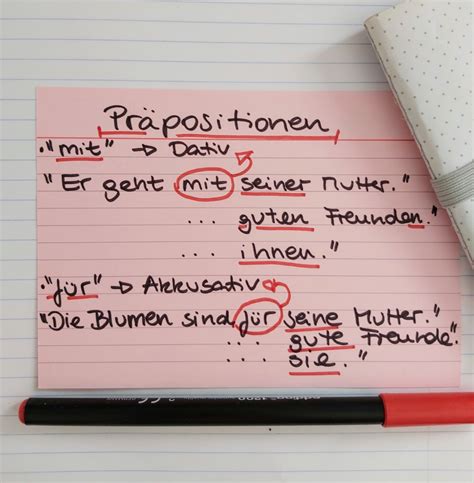 Präpositionen
• "mit" → Dativ
"Er geht mit seiner Mutter."
... guten Freunden."
... ihnen."
• "für" → Akkusativ
"Die Blumen sind für seine Mutter."
... gute Freunde."
... sie."
1200